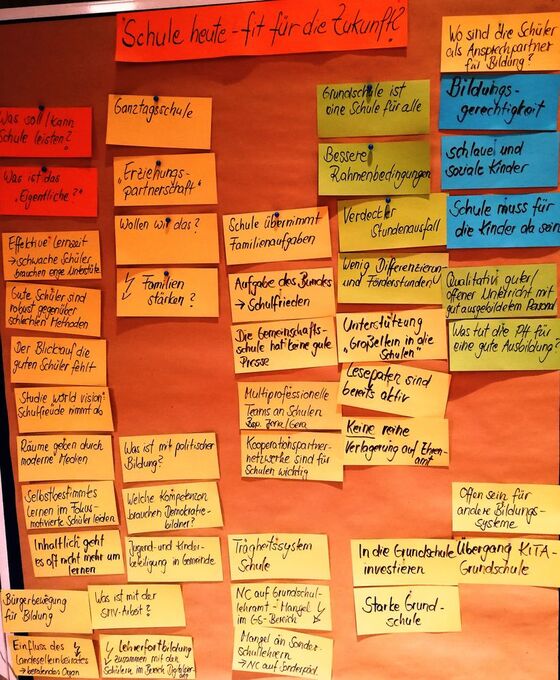 "Schule heute - fit für die Zukunft?"
Was soll/kann
Schule leisten?
Was ist das
"Eigentliche?"
Effektive Lernzeit
→ schwache Schüler
brauchen enge Unterstütz.
Gute Schüler sind
robust gegenüber
schlechten Methoden
Der Blick auf die
guten Schüler fehlt
Studie "world vision"
Schulfreude nimmt ab
Räume geben durch
moderne Medien
Selbstbestimmtes
Lernen im Fokus-
motivierte Schüler leiden
Inhaltlich geht
es oft nicht mehr um
lernen
Bürgerbewegung
für Bildung
Einfluss des
Landeselternbeirates
→ beratendes Organ
Ganztagsschule
"Erziehungs-
partnerschaft"
Wollen wir das?
Familien
stärken?
Was ist mit politischer
Bildung?
Welche Kompetenzen
brauchen Demokratie-
bildner?
Jugend- und Kinder-
beteiligung in Gemeinde
Was ist mit der
SMV-Arbeit?
Lehrerfortbildung
zusammen mit den
Schülern im Bereich
Schule übernimmt
Familienaufgaben
Aufgabe des Bundes
→ Schulfrieden
Die Gemeinschafts-
schule hat keine gute
Presse
Multiprofessionelle
Teams an Schulen
Bsp. Jena/Gera
Kooperationspartner-
netzwerke sind für
Schulen wichtig
Trägheitssystem
Schule
NC auf Grundschul-
lehramt - Mangel
im GS-Bereich
Mangel an Sonder-
schullehrern
→ NC auf Sonderpäd.
Grundschule ist
eine Schule für alle
Bessere
Rahmenbedingungen
Verdeckter
Stundenausfall
Wenig Differenzierung
und Förderstunden
Unterstützung
"Großeltern in die
Schulen"
Lesepaten sind
bereits aktiv
Keine reine
Verlagerung auf Ehren-
amt
In die Grundschule
investieren
Starke Grund-
schule
Wo sind die Schüler
als Ansprechpartner
für Bildung?
Bildungs-
gerechtigkeit
schlaue und
soziale Kinder
Schule muss für
die Kinder da sein
Qualitativ guter/
offener Unterricht mit
gut ausgebildetem Personal
Was tut die PH für
eine gute Ausbildung?
Offen sein für
andere Bildungs-
systeme
Übergang KITA-
Grundschule